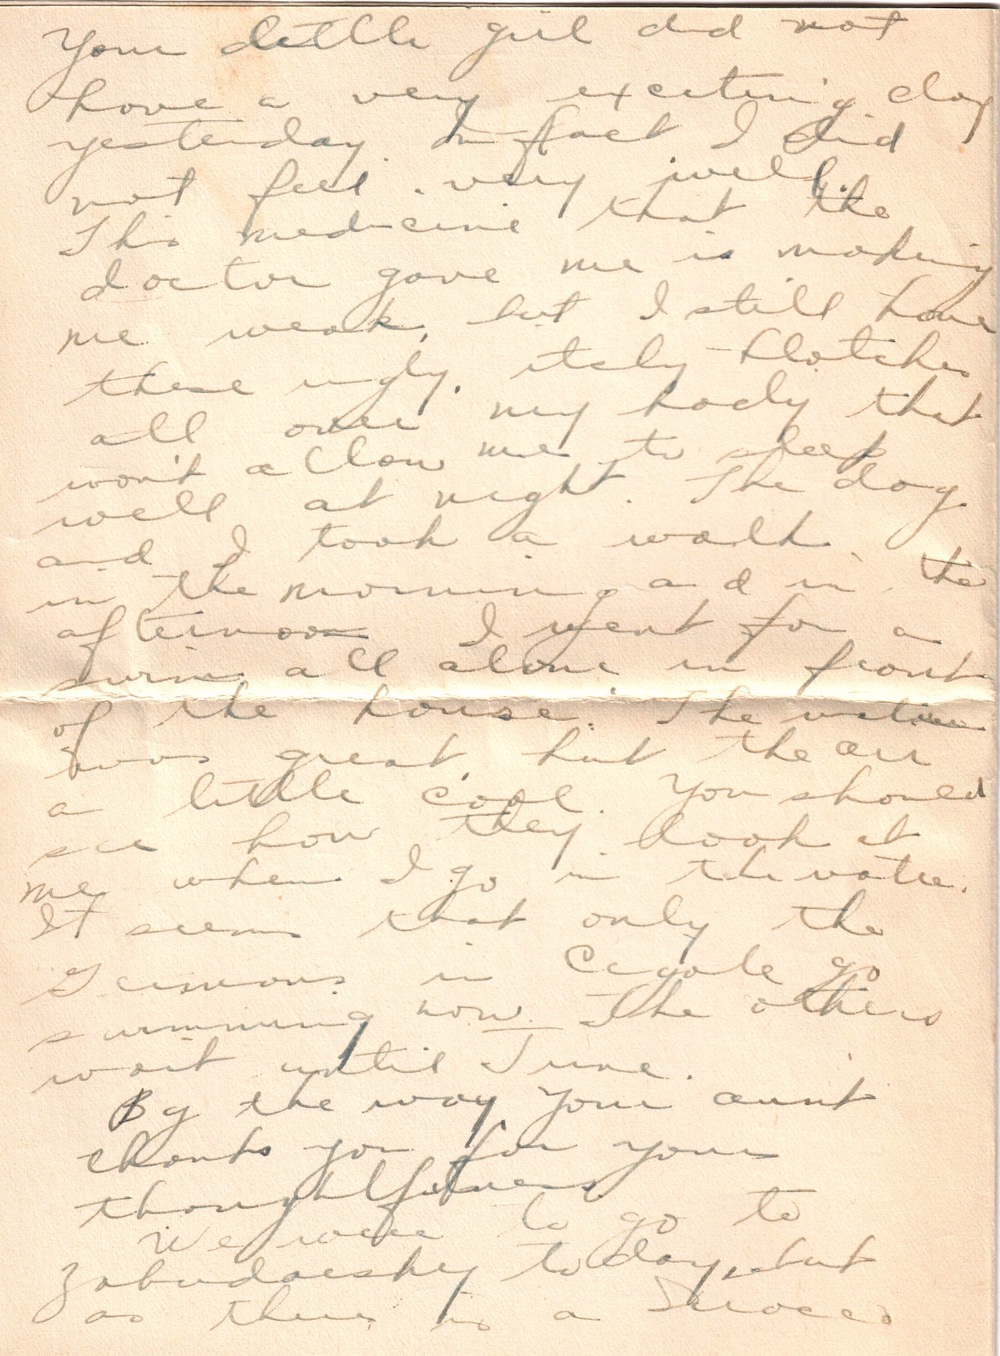 Your little girl did not
have a very exciting day
yesterday. In fact I did
not feel very well.
This medicine that the
doctor gave me is making
me weak, but I still have
these ugly, itchy blotches
all over my body that
won't allow me to sleep
well at night. The dog
and I took a walk
in the morning and in the
afternoon I went for a
swim all alone in front
of the house. The water
was great, but the air
a little cool. You should
see how they look at
me when I go in the water.
It seems that only the
Germans in go
swimming now. The others
wait until June.
By the way your aunt
thanks you for your
thoughtfulness.
We were to go to
today, but
as there is a